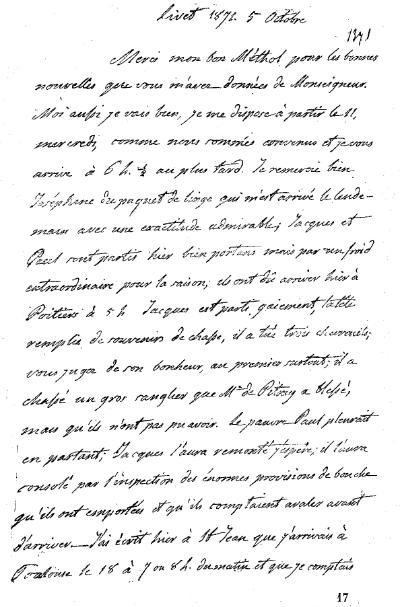 Livet 1871. 5 Octobre
1371
Merci mon bon Méthol pour les bonnes
nouvelles que vous m'avez données de Monseigneur.
Moi aussi je vais bien, je me dispose à partir le 11,
mercredi, comme nous sommes convenus et je vous
arrive à 6 h. ½ au plus tard. Je remercie bien
Joséphine du paquet de linge qui m'est arrivé le lende-
main avec une exactitude admirable; Jacques et
Paul sont partis hier bien portans mais par un froid
extraordinaire pour la saison; ils ont dû arriver hier à
Poitiers à 5 h Jacques est parti gaiement, la tête
remplie de souvenirs de chasse, il a tué trois chevreuils;
vous jugez de son bonheur, au premier surtout; il a
chassé un gros sanglier que Mr de Pitray a blessé,
mais qu'ils n'ont pas pu avoir. Le pauvre Paul pleurait
en partant; Jacques l'aura remonté j'espère; il l'aura
consolé par l'inspection des énormes provisions de bouche
qu'ils ont emportées et qu'ils comptaient avaler avant
d'arriver._ J'ai écrit hier à St Jean que j'arrivais à
Toulouse le 18 à 7 ou 8 h. du matin et que je comptais
17